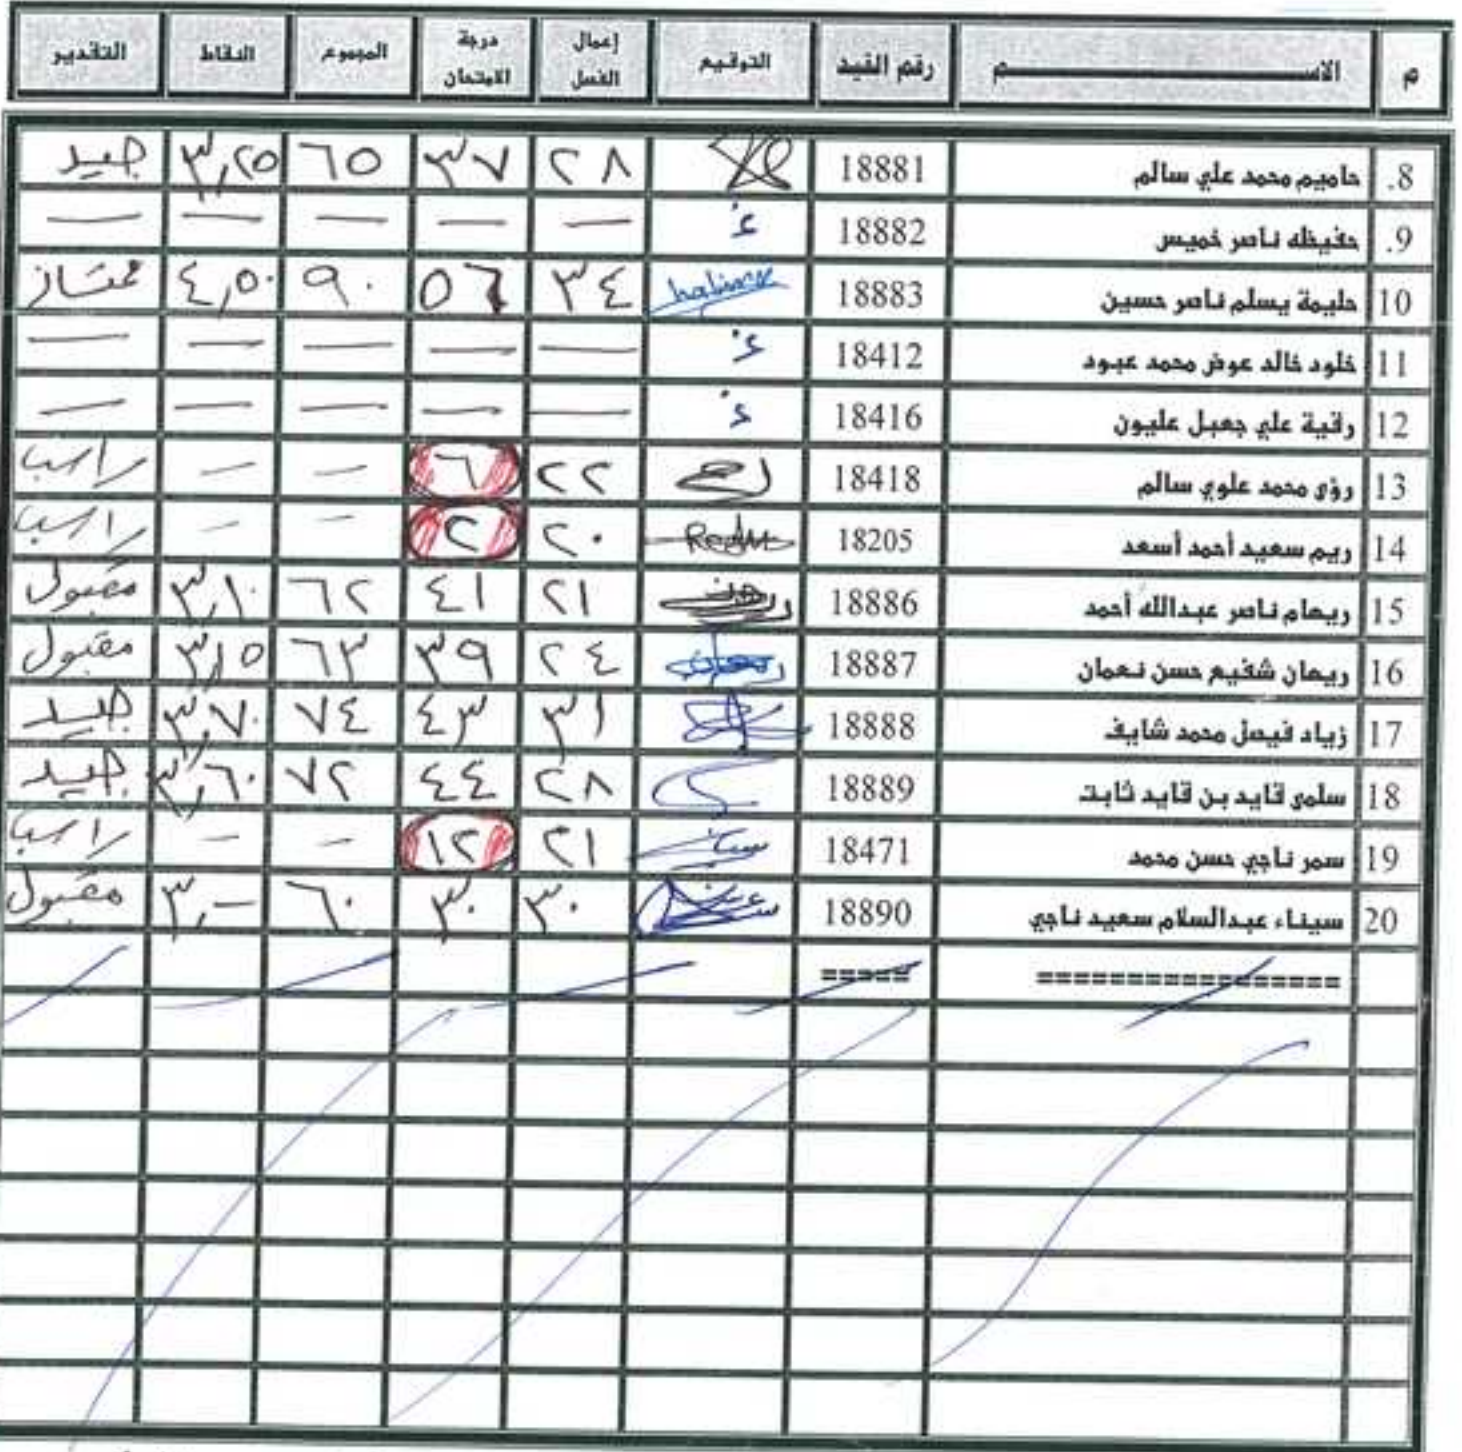 م الاســـــم رقم القيد التوقيع إعمال الفصل درجة الامتحان المجموع النقاط التقدير
8. حاميم محمد علي سالم 18881 ٢٨ ٣٧ ٦٥ ٣,٢٥ جيد
9. حفيظه ناصر خميس 18882 غ — — — — —
10 حليمة يسلم ناصر حسين 18883 halima ٣٤ ٥٦ ٩٠ ٤,٥٠ ممتاز
11 خلود خالد عوض محمد عبود 18412 غ — — — — —
12 رقية علي جعبل عليون 18416 غ — — — — —
13 رؤى محمد علوي سالم 18418 ٢٢ ٦ — — راسب
14 ريم سعيد أحمد أسعد 18205 ٢٠ ٢ — — راسب
15 ريهام ناصر عبدالله أحمد 18886 ٢١ ٤١ ٦٢ ٣,١٠ مقبول
16 ريهان شفيع حسن نعمان 18887 ٢٤ ٣٩ ٦٣ ٣,١٥ مقبول
17 زياد فيصل محمد شايف 18888 ٣١ ٤٣ ٧٤ ٣,٧٠ جيد
18 سلمى قايد بن قايد ثابت 18889 ٢٨ ٤٤ ٧٢ ٣,٦٠ جيد
19 سمر ناجي حسن محمد 18471 ٢١ ١٢ — — راسب
20 سيناء عبدالسلام سعيد ناجي 18890 ٣٠ ٣٠ ٦٠ ٣,— مقبول
================= =====